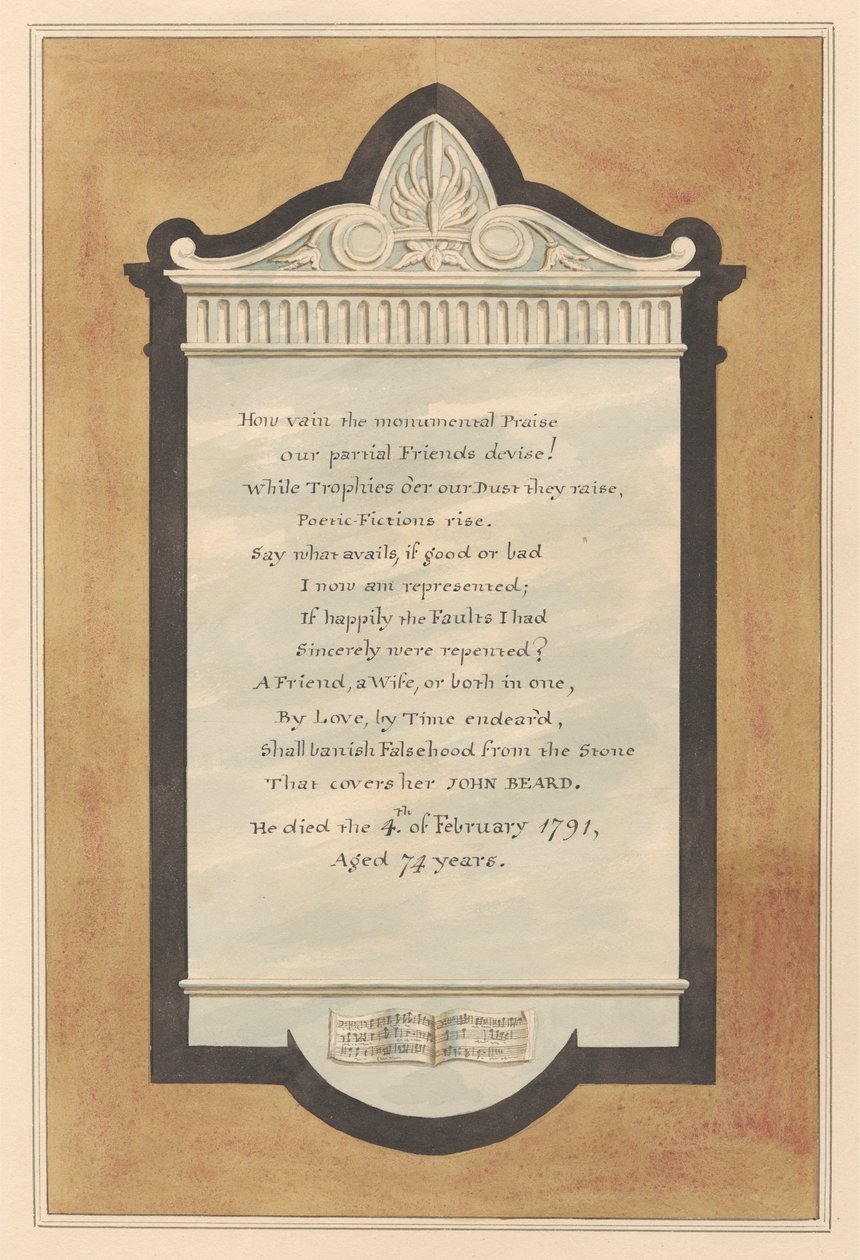 How vain the monumental Praise
our partial Friends devise!
While Trophies o'er our Dust they raise,
Poetic-Fictions rise.
Say what avails, if good or bad
I now am represented;
If happily the Faults I had
Sincerely were repented?
A Friend, a Wife, or both in one,
By Love, by Time endear'd,
Shall banish Falsehood from the Stone
That covers her JOHN BEARD.
He died the 4.th of February 1791,
Aged 74 years.